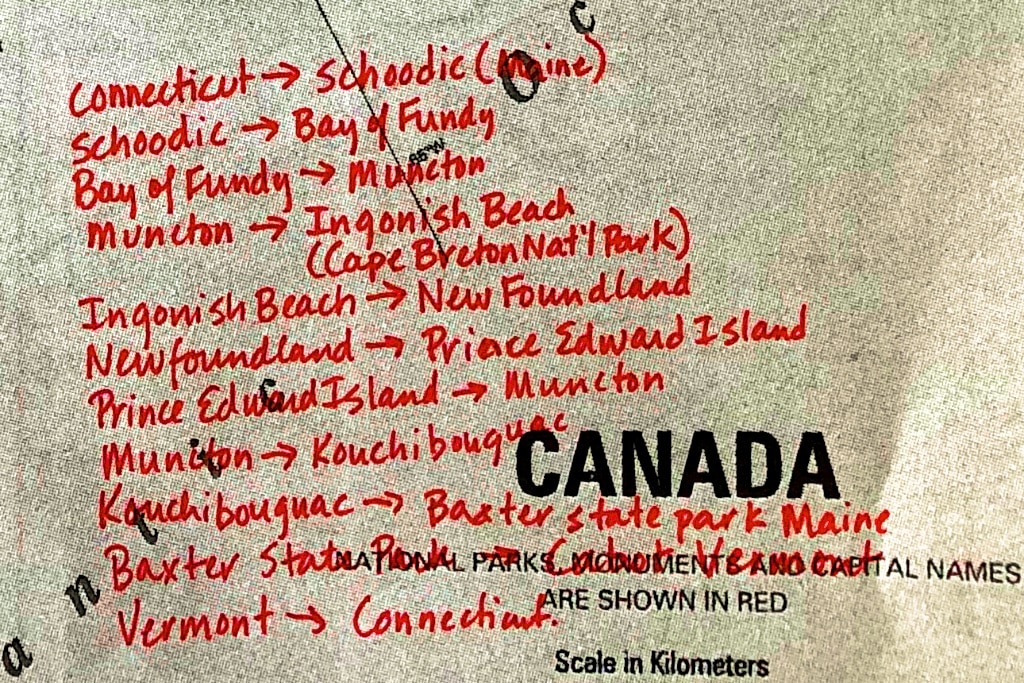 c
Connecticut → Schoodic (Maine)
O
Schoodic → Bay of Fundy
Bay of Fundy → Muncton
Muncton → Ingonish Beach
(Cape Breton Nat'l Park)
Ingonish Beach → New Foundland
Newfoundland → Prince Edward Island
Prince Edward Island → Muncton
Muncton → Kouchibouguac
CANADA
Kouchibouguac → Baxter state park Maine
Baxter State Park → Vermont
NATIONAL PARKS, MONUMENTS AND CAPITAL NAMES
ARE SHOWN IN RED
Vermont → Connecticut.
Scale in Kilometers
a n t i c